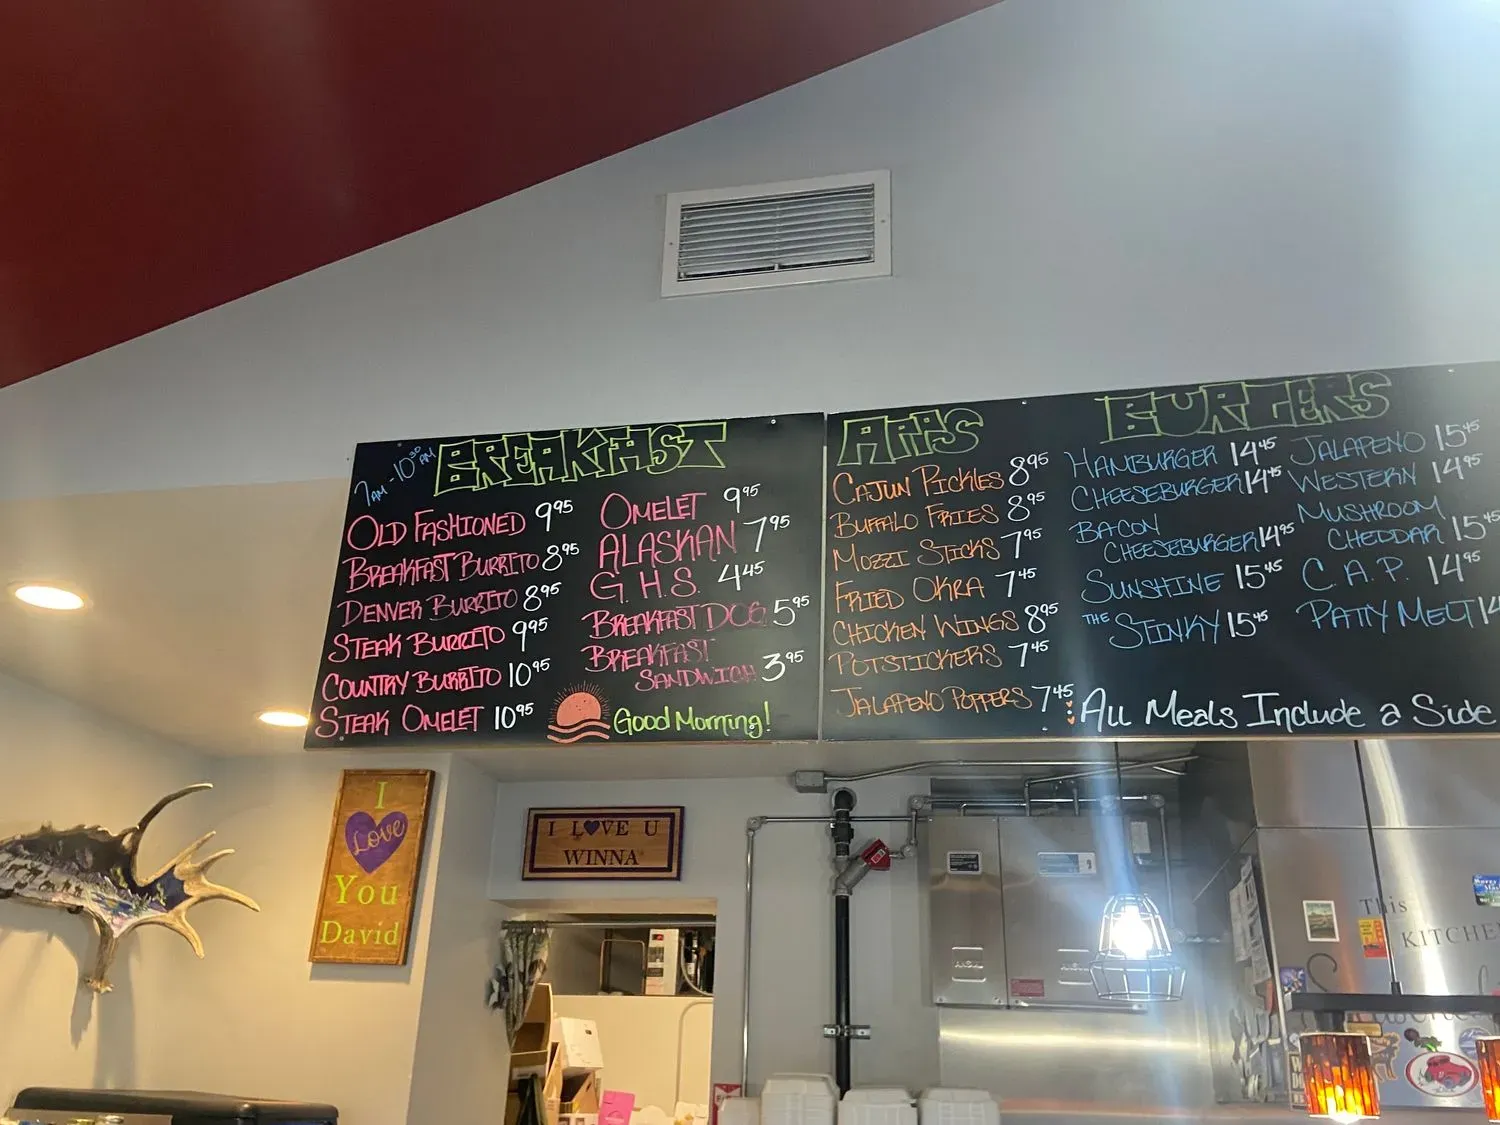 7AM - 10³⁰ AM
BREAKFAST
OLD FASHIONED 9⁹⁵
BREAKFAST BURRITO 8⁹⁵
DENVER BURRITO 8⁹⁵
STEAK BURRITO 9⁹⁵
COUNTRY BURRITO 10⁹⁵
STEAK OMELET 10⁹⁵
OMELET 9⁹⁵
ALASKAN 7⁹⁵
G.H.S. 4⁴⁵
BREAKFAST DOG 5⁹⁵
BREAKFAST
SANDWICH 3⁹⁵
Good Morning!
APPS
CAJUN PICKLES 8⁹⁵
BUFFALO FRIES 8⁹⁵
MOZZI STICKS 7⁹⁵
FRIED OKRA 7⁴⁵
CHICKEN WINGS 8⁹⁵
POTSTICKERS 7⁴⁵
JALAPENO POPPERS 7⁴⁵
BURGERS
HAMBURGER 14⁴⁵
CHEESEBURGER 14⁴⁵
BACON
CHEESEBURGER 14⁹⁵
SUNSHINE 15⁴⁵
THE STINKY 15⁴⁵
JALAPENO 15⁴⁵
WESTERN 14⁹⁵
MUSHROOM
CHEDDAR 15⁴⁵
C.A.P. 14⁹⁵
PATTY MELT 14
All Meals Include a Side
I
Love
You
David
I LOVE U
WINNA
ANSUL
ANSUL
This
KITCHEN